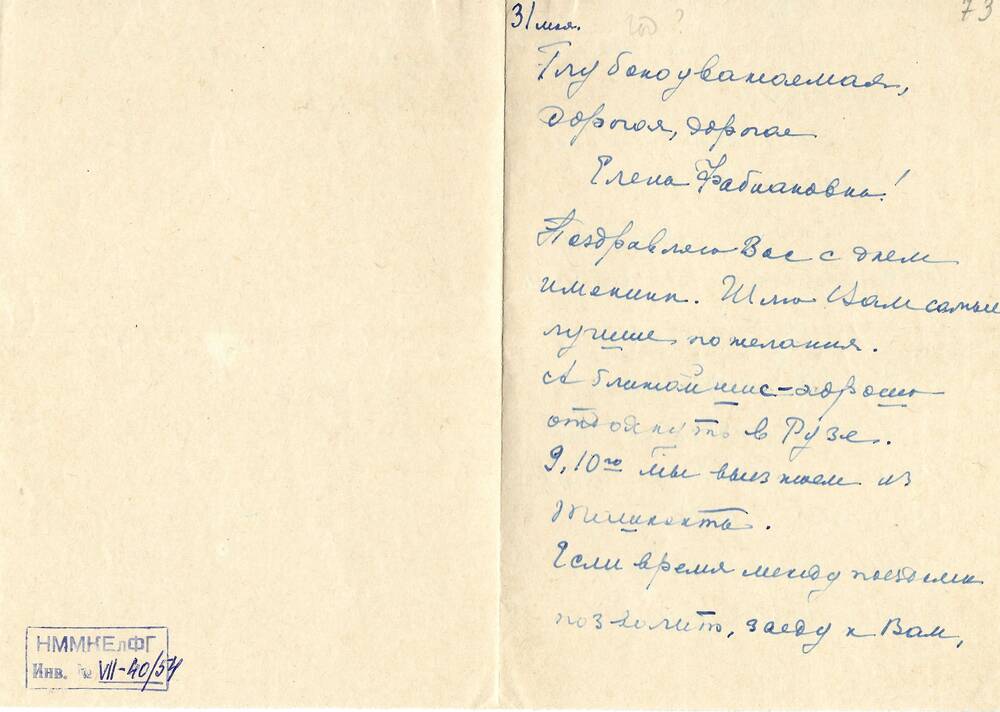 31 мая.
год?
73
Глубокоуважаемая,
дорогая, дорогая
Елена Фабиановна!
Поздравляю Вас с днем
именин. Шлю Вам самые
лучшие пожелания.
А ближайшие - хорошо
отдохнуть в Рузе.
9, 10го мы выезжаем из
Ташкента.
Если время между поездами
позволит, заеду к Вам,
НММКЕлФГ
Инв. № VII-40/54